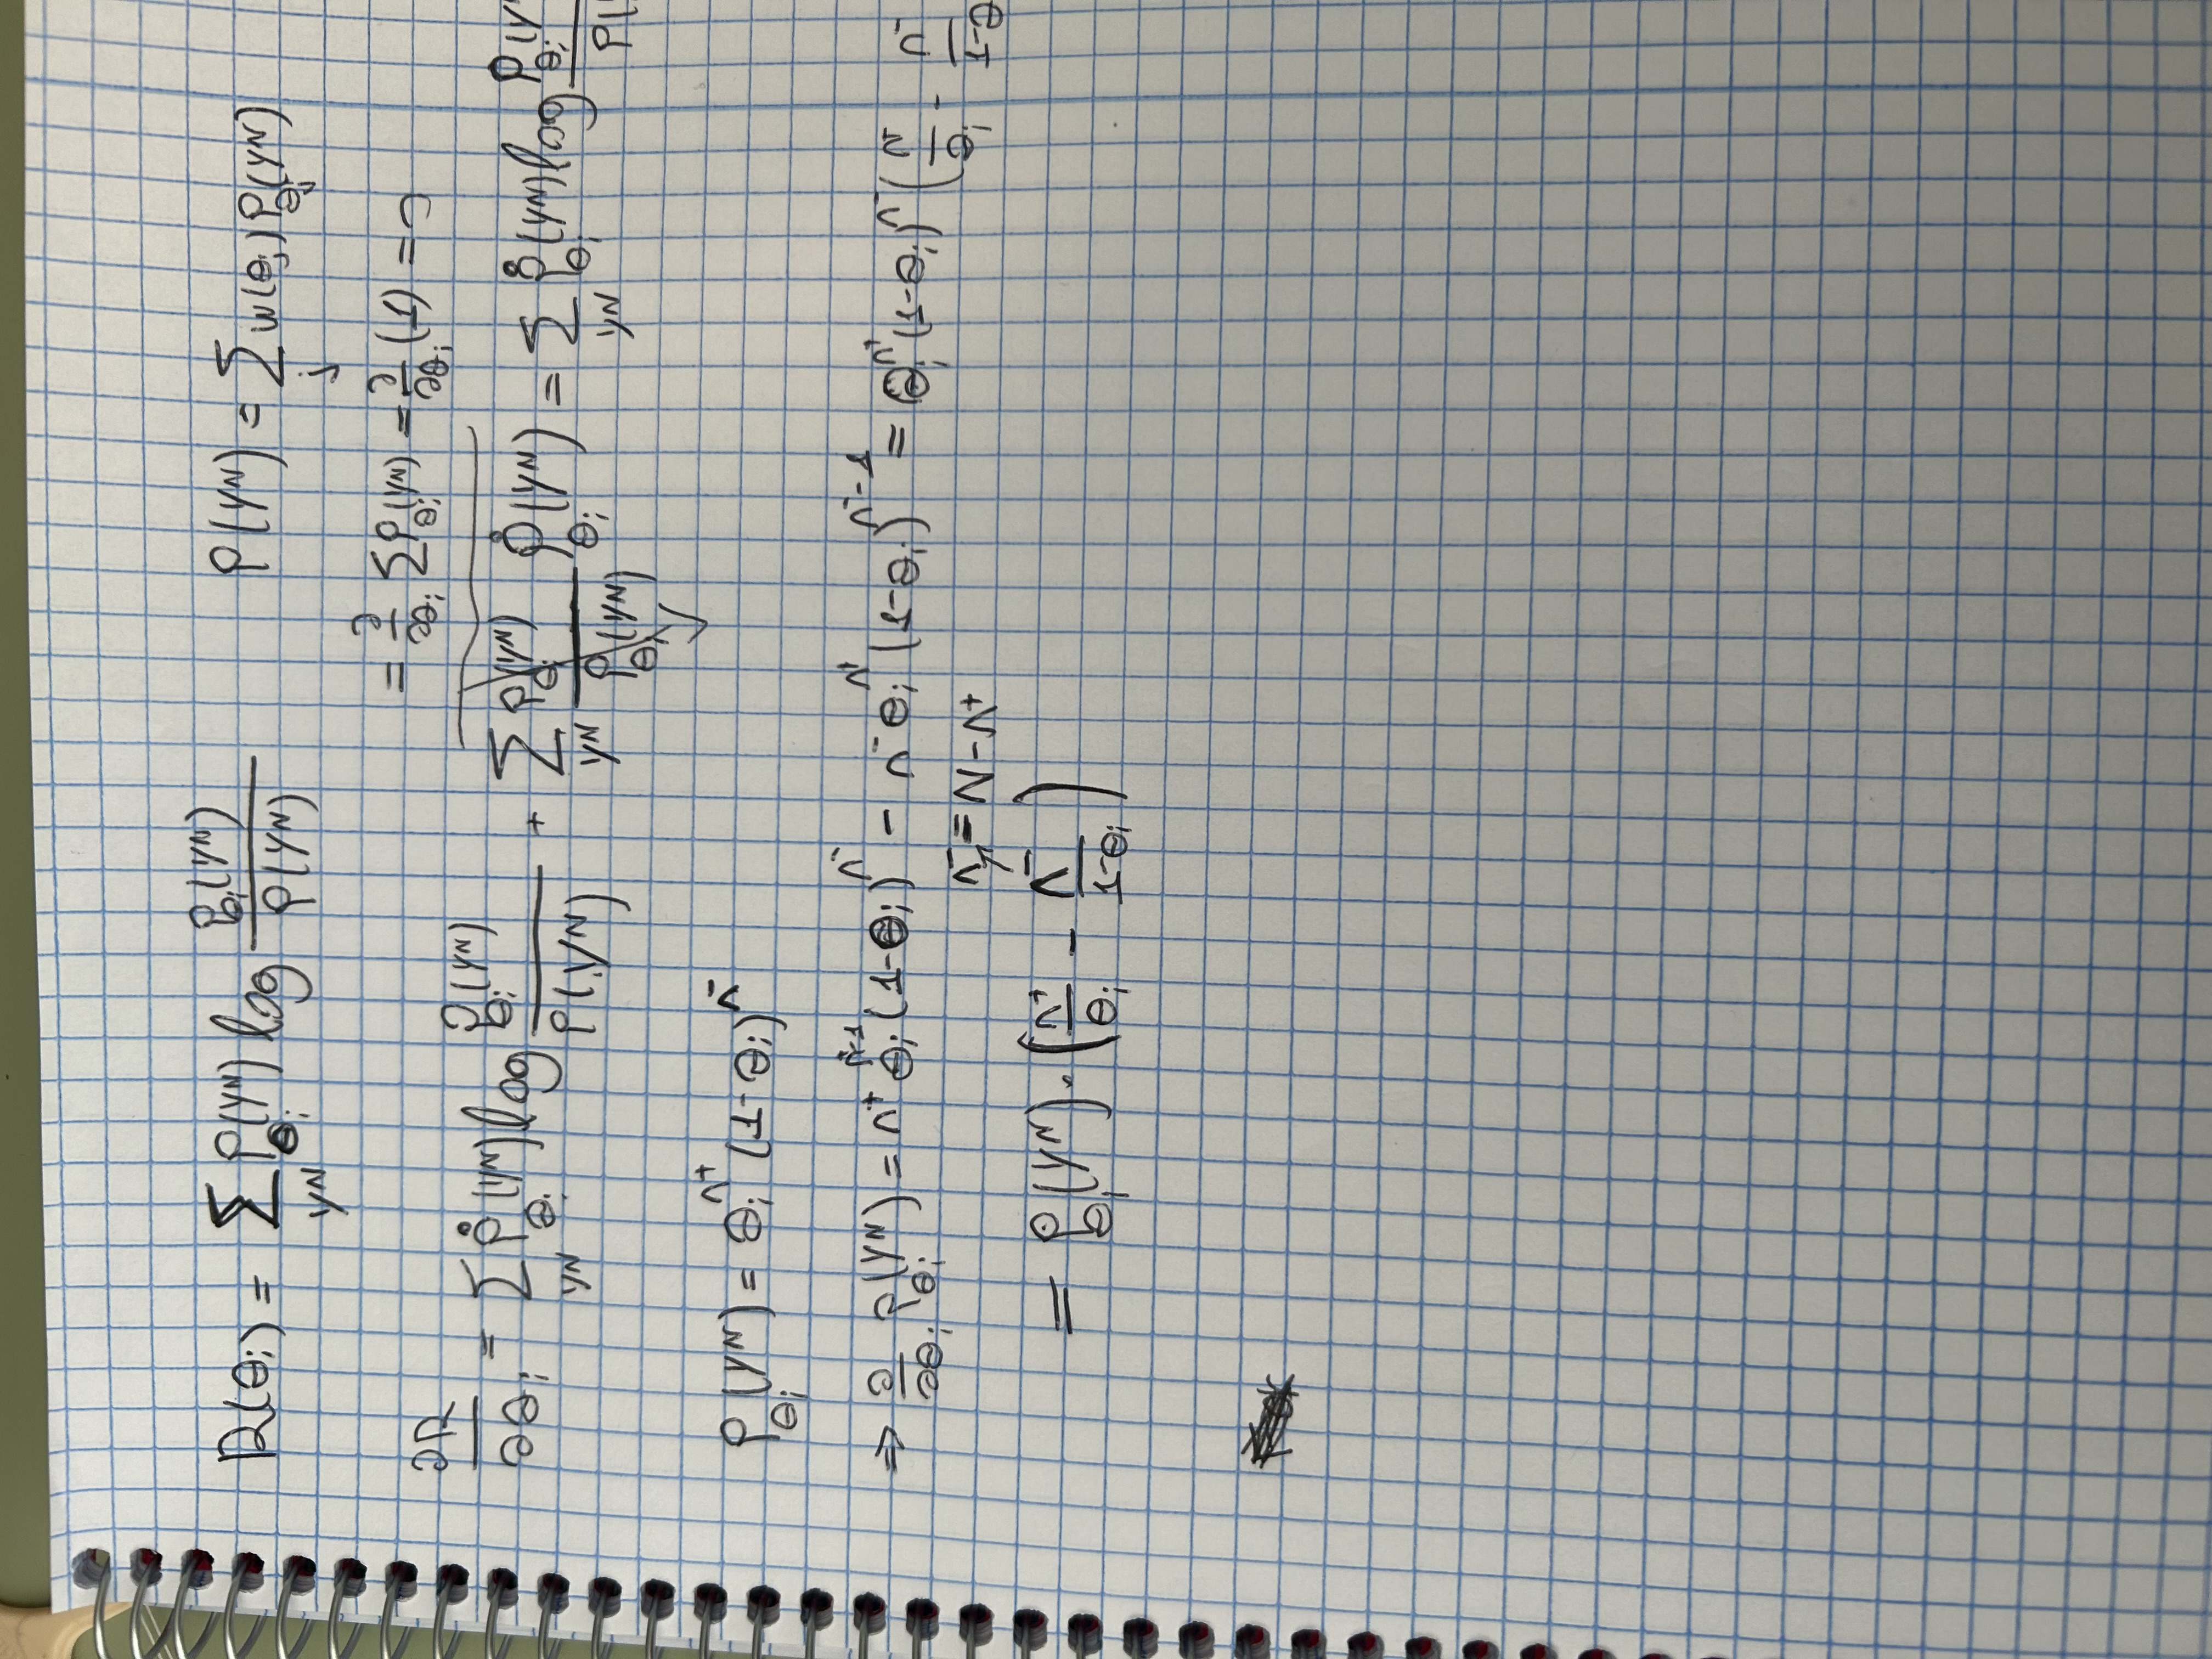 R(θᵢ) = ∑_{y^N} P_{θᵢ}(y^N) log P_{θᵢ}(y^N) / P(y^N)    P(y^N) = ∑_j w(θⱼ) P_{θⱼ}(y^N)
= ∂/∂θᵢ ∑ P_{θᵢ}(y^N) = ∂/∂θᵢ (1) = 0
∂R/∂θᵢ = ∑_{y^N} Ṗ_{θᵢ}(y^N) log P_{θᵢ}(y^N) / P(y^N) + ∑_{y^N} P_{θᵢ}(y^N) / P_{θᵢ}(y^N) Ṗ_{θᵢ}(y^N) = ∑_{y^N} Ṗ_{θᵢ}(y^N) log P_{θᵢ}(y / P(
P_{θᵢ}(y^N) = θᵢ^{n⁺} (1-θᵢ)^{n⁻}
⇒ ∂/∂θᵢ P_{θᵢ}(y^N) = n⁺ θᵢ^{n⁺-1} (1-θᵢ)^{n⁻} - n⁻ θᵢ^{n⁺} (1-θᵢ)^{n⁻-1} = θᵢ^{n⁺} (1-θᵢ)^{n⁻} (n⁺/θᵢ - n⁻/1-θ
n⁻ = N - n⁺
= P_{θᵢ}(y^N) · (n⁺/θᵢ - n⁻/1-θᵢ)